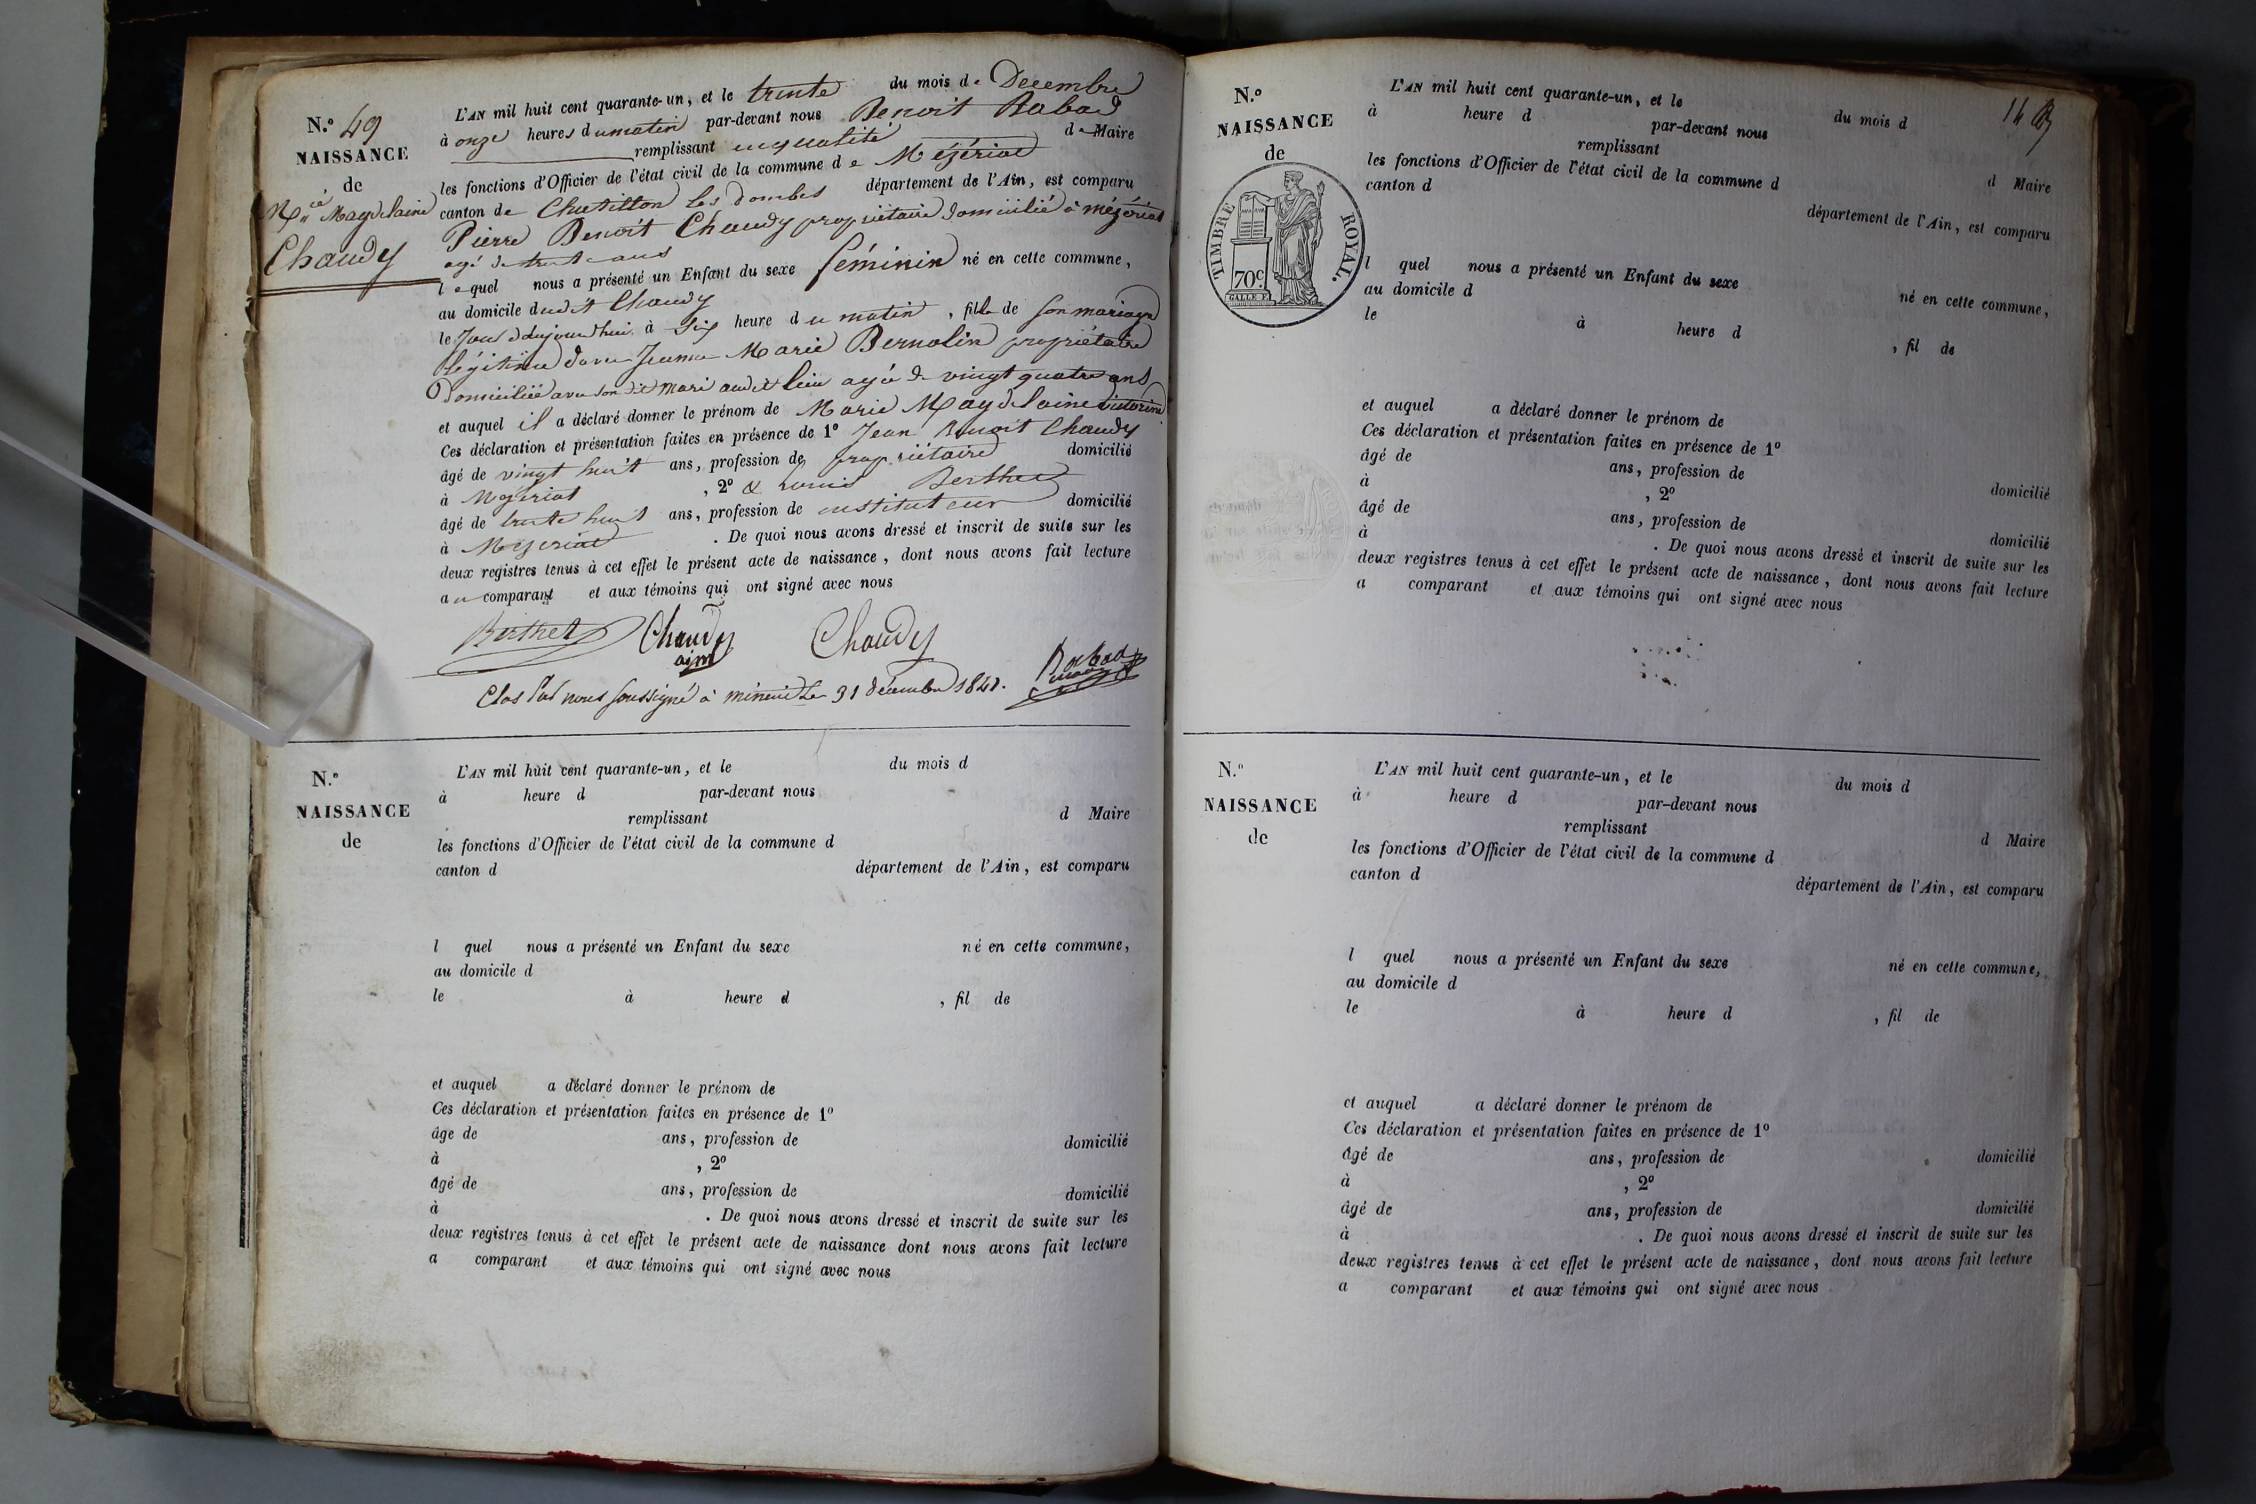 N.º 49
NAISSANCE
de
M.ie Magdelaine
Chaudy
L'AN mil huit cent quarante-un, et le trente du mois de Decembre
à onze heures du matin par-devant nous Benoit Rabad
remplissant en qualité de Maire
les fonctions d'Officier de l'état civil de la commune de Mézériat
canton de Chatillon les dombes département de l'Ain, est comparu
Pierre Benoit Chaudy propriétaire domicilié à mézériat
agé de trente ans
lequel nous a présenté un Enfant du sexe féminin né en cette commune,
au domicile dudit Chaudy
le Jour d'aujourdhui à six heure du matin, fille de son mariage
légitime avec Jeanne Marie Bernolin propriétaire
Domiciliée avec son dit mari audit lieu agée de vingt quatre ans
et auquel il a déclaré donner le prénom de Marie Magdelaine victorine
Ces déclaration et présentation faites en présence de 1º Jean Benoit Chaudy
âgé de vingt huit ans, profession de propriétaire domicilié
à Mézériat, 2º & Louis Berthet
âgé de trente huit ans, profession de instituteur domicilié
à Mézériat. De quoi nous avons dressé et inscrit de suite sur les
deux registres tenus à cet effet le présent acte de naissance, dont nous avons fait lecture
au comparant et aux témoins qui ont signé avec nous
Berthet Chaudy Chaudy
Clos Par nous soussigné à minuit Le 31 décembre 1841.
N.º
NAISSANCE
de
L'AN mil huit cent quarante-un, et le du mois d
à heure d par-devant nous
remplissant d Maire
les fonctions d'Officier de l'état civil de la commune d
canton d département de l'Ain, est comparu
l quel nous a présenté un Enfant du sexe né en cette commune,
au domicile d
le à heure d , fil de
et auquel a déclaré donner le prénom de
Ces déclaration et présentation faites en présence de 1º
âge de ans, profession de domicilié
à , 2º
âgé de ans, profession de domicilié
à . De quoi nous avons dressé et inscrit de suite sur les
deux registres tenus à cet effet le présent acte de naissance dont nous avons fait lecture
a comparant et aux témoins qui ont signé avec nous
14
N.º
NAISSANCE
de
TIMBRE ROYAL.
70c.
L'AN mil huit cent quarante-un, et le du mois d
à heure d par-devant nous
remplissant d Maire
les fonctions d'Officier de l'état civil de la commune d
canton d département de l'Ain, est comparu
l quel nous a présenté un Enfant du sexe né en cette commune,
au domicile d
le à heure d , fil de
et auquel a déclaré donner le prénom de
Ces déclaration et présentation faites en présence de 1º
âgé de ans, profession de domicilié
à , 2º
âgé de ans, profession de domicilié
à . De quoi nous avons dressé et inscrit de suite sur les
deux registres tenus à cet effet le présent acte de naissance, dont nous avons fait lecture
a comparant et aux témoins qui ont signé avec nous
N.º
NAISSANCE
de
L'AN mil huit cent quarante-un, et le du mois d
à heure d par-devant nous
remplissant d Maire
les fonctions d'Officier de l'état civil de la commune d
canton d département de l'Ain, est comparu
l quel nous a présenté un Enfant du sexe né en cette commune,
au domicile d
le à heure d , fil de
et auquel a déclaré donner le prénom de
Ces déclaration et présentation faites en présence de 1º
âgé de ans, profession de domicilié
à , 2º
âgé de ans, profession de domicilié
à . De quoi nous avons dressé et inscrit de suite sur les
deux registres tenus à cet effet le présent acte de naissance, dont nous avons fait lecture
a comparant et aux témoins qui ont signé avec nous